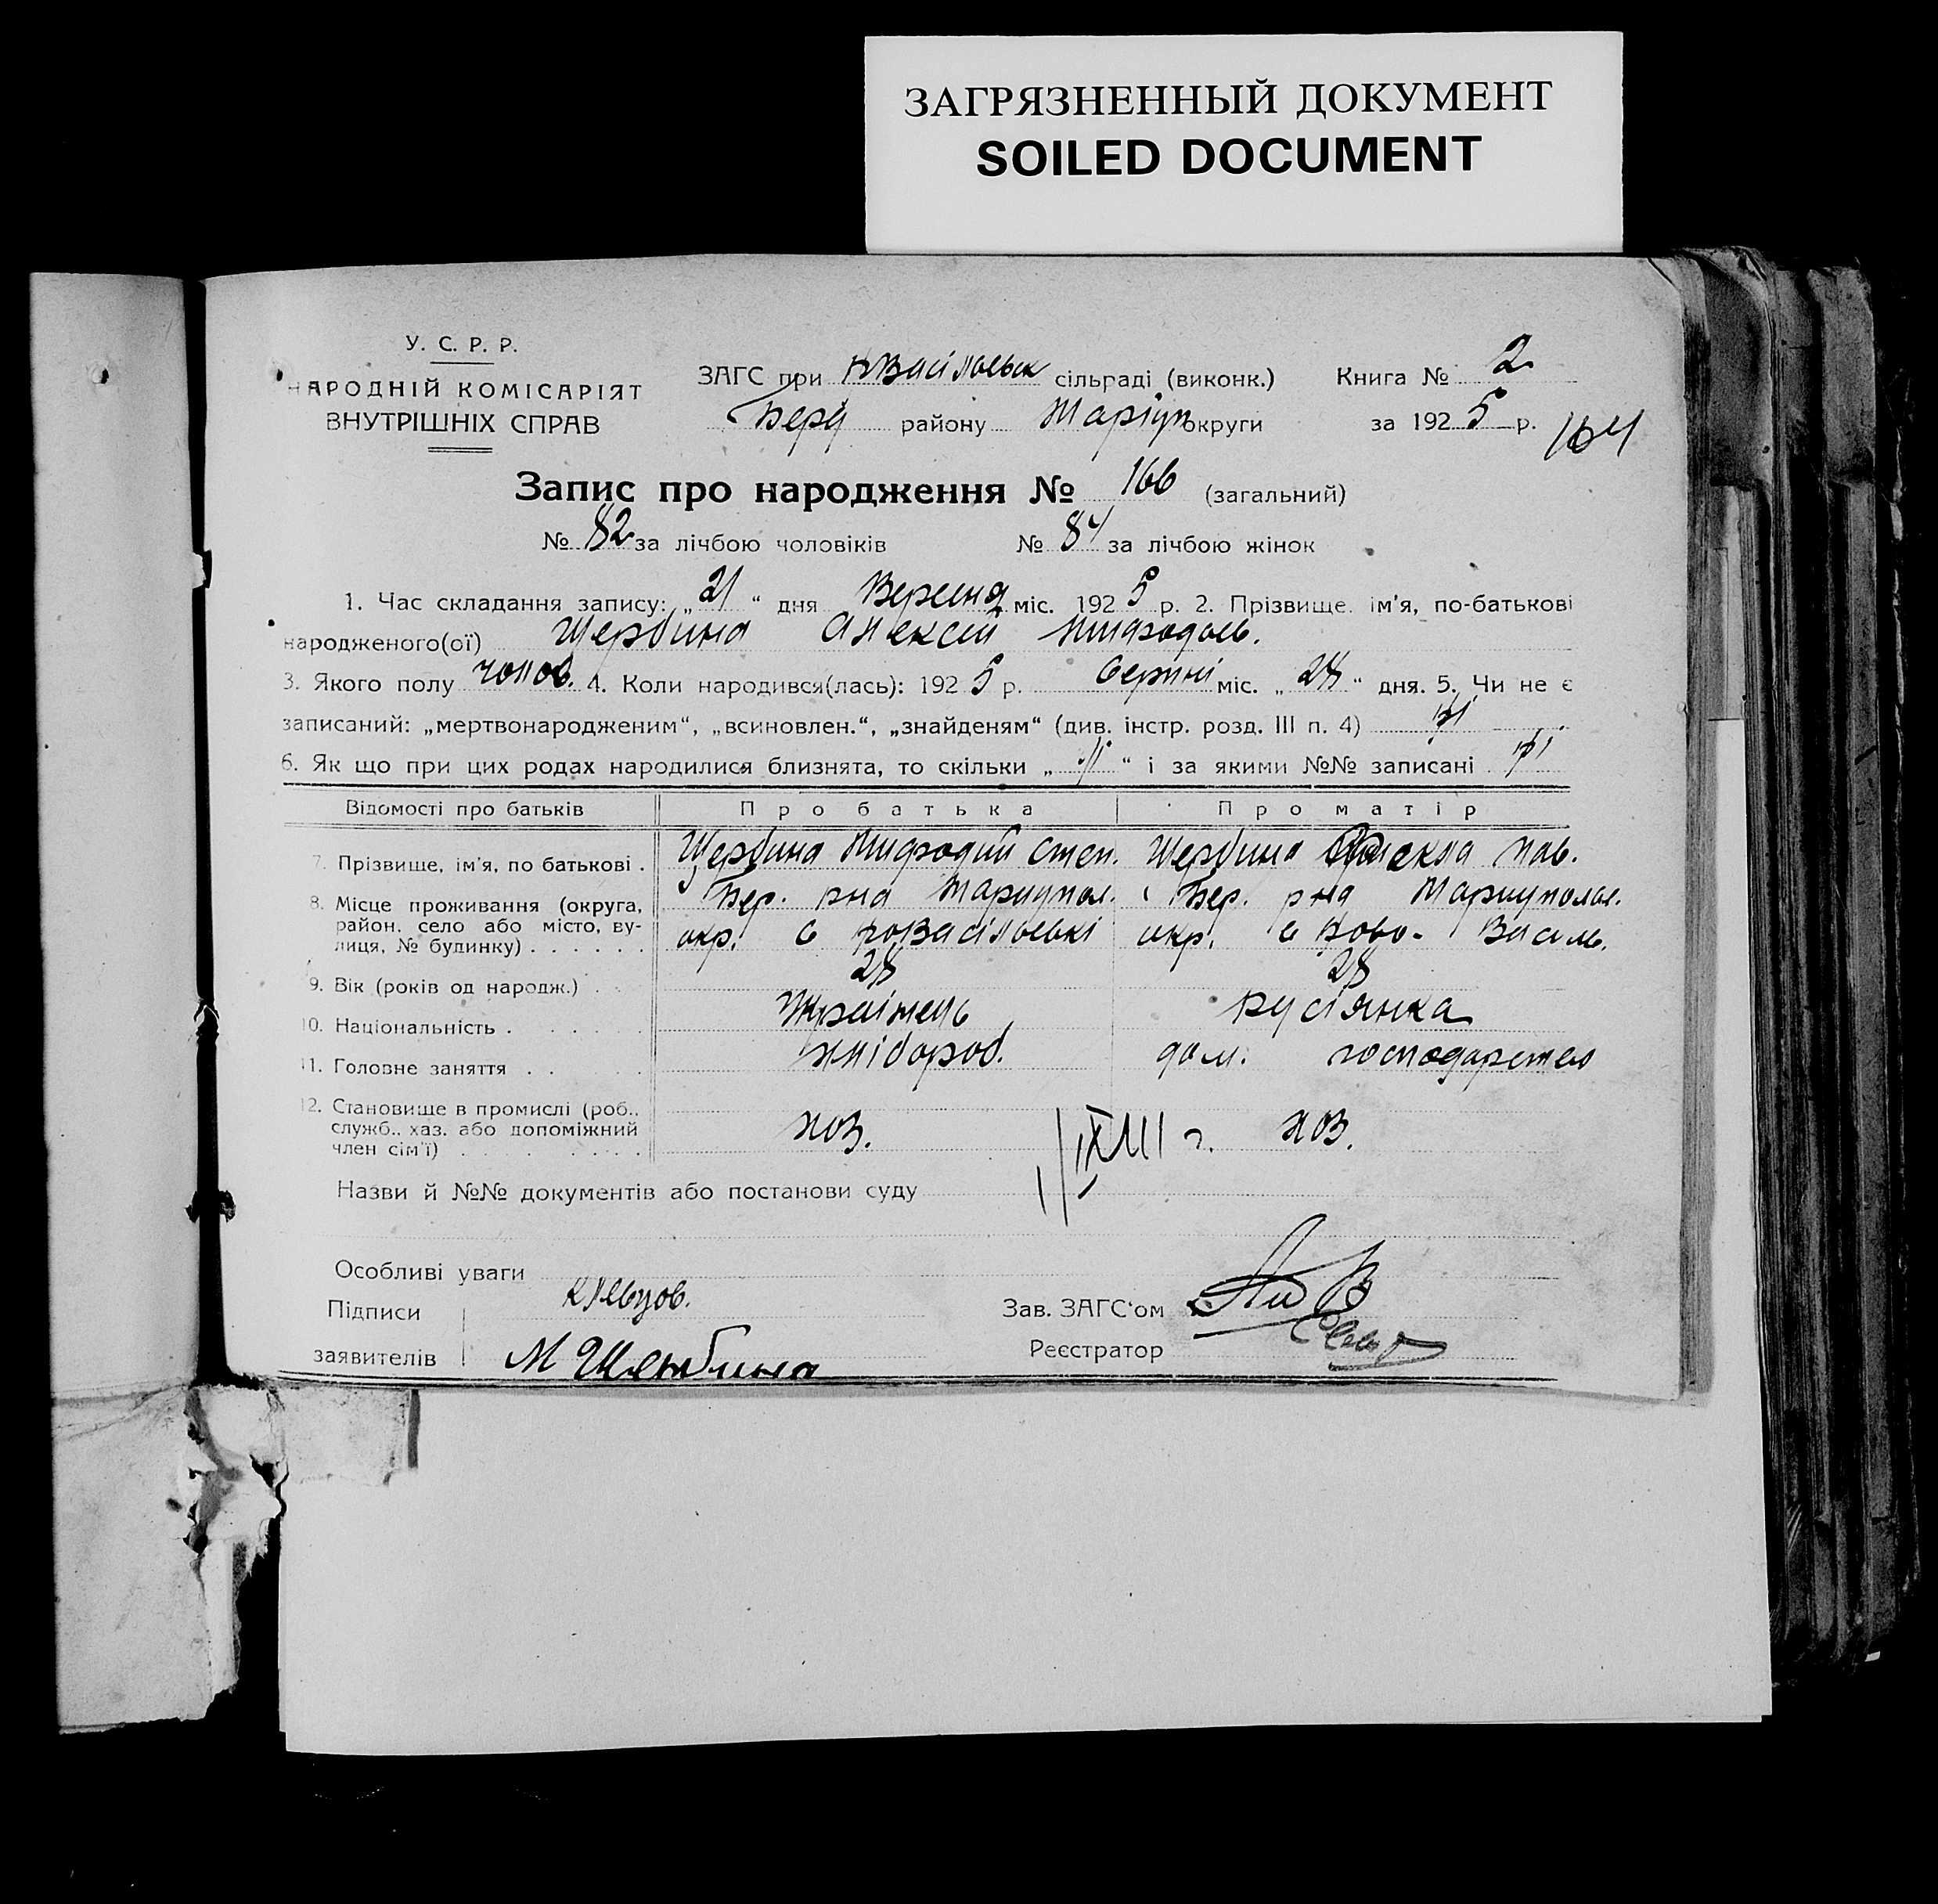 ЗАГРЯЗНЕННЫЙ ДОКУМЕНТ
SOILED DOCUMENT
У. С. Р. Р.
НАРОДНІЙ КОМІСАРІЯТ
ВНУТРІШНІХ СПРАВ
ЗАГС при НВасільевск сільраді (виконк.) Книга № 2
Берд району Маріуп округи за 1925 р. 164
Запис про народження № 166 (загальний)
№ 82 за лічбою чоловіків № 84 за лічбою жінок
1. Час складання запису: „21“ дня Вересня міс. 1925 р. 2. Прізвище, ім'я, по-батькові
народженого(ої) Щербина Алексей Мифодьев.
3. Якого полу чолов. 4. Коли народився(лась): 1925 р. Серпні міс. „28“ дня. 5. Чи не є
записаний: „мертвонародженим“, „всиновлен.“, „знайденям“ (див. інстр. розд. III п. 4) ні
6. Як що при цих родах народилися близнята, то скільки „ні“ і за якими №№ записані ні
Відомості про батьків Про батька Про матір
7. Прізвище, ім'я, по батькові . Щербина Мифодий Степ. Щербина Пав.
8. Місце проживання (округа, район, село або місто, вулиця, № будинку) . . . . . . Бер. рна Мариупол. окр. с Новасільевкі Бер. рна Мариупольс. окр. с Ново-Василь.
9. Вік (років од народж.) . . 28 28
10. Національність . . . . . . Українець русіянка
11. Головне заняття . . . . хлібороб. дом. господарство
12. Становище в промислі (роб., служб., хаз. або допоміжний член сім'ї) . . . . . . . хоз. хоз.
Назви й №№ документів або постанови суду
Особливі уваги
Підписи Зав. ЗАГС'ом
заявителів М Щербина Реєстратор